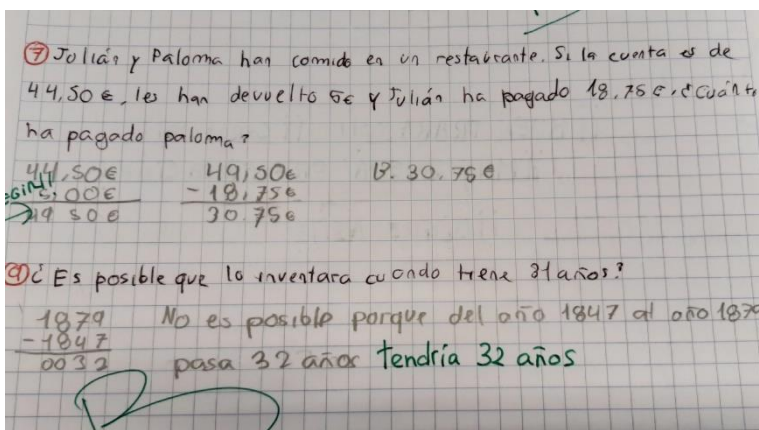 ⑦ Julián y Paloma han comido en un restaurante. Si la cuenta es de
44,50 €, les han devuelto 5€ y Julián ha pagado 18,75 €, ¿Cuánto
ha pagado paloma?
44,50€ 49,50€ R. 30.75€
5,00€ - 18,75€
49 50€ 30.75€
⑨ ¿Es posible que lo inventara cuando tiene 31 años?
1879 No es posible porque del año 1847 al año 1879
-1847
0032 pasa 32 años tendría 32 años